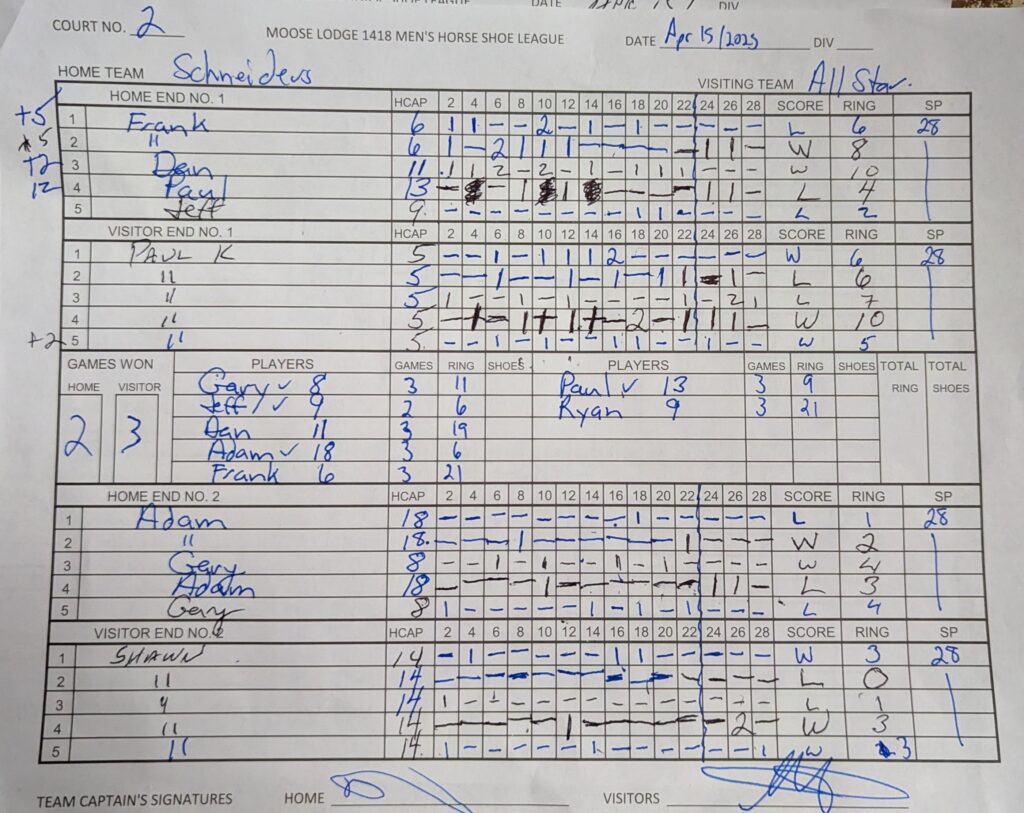 DATE DIV
COURT NO. 2 MOOSE LODGE 1418 MEN'S HORSE SHOE LEAGUE DATE Apr 15/2025 DIV
HOME TEAM Schneiders VISITING TEAM All Star.
HOME END NO. 1 HCAP 2 4 6 8 10 12 14 16 18 20 22 24 26 28 SCORE RING SP
+5 1 Frank 6 1 1 - - 2 - 1 - 1 - - - - - L 6 28
5 2 " 6 1 - 2 1 1 1 - - - - - 1 1 - W 8
+2 3 Dan 11 1 1 2 - 2 - 1 - 1 1 1 - - - W 10
12 4 Paul 13 - - 1 1 - - - - 1 1 - L 4
5 Jeff 9 - - - - - - - - 1 1 - - - - L 2
VISITOR END NO. 1 HCAP 2 4 6 8 10 12 14 16 18 20 22 24 26 28 SCORE RING SP
1 PAUL K 5 - - 1 - 1 1 1 2 - - - - - - W 6 28
2 " 5 - - 1 - - 1 - 1 - 1 1 - 1 - L 6
3 " 5 1 - - 1 - 1 - - - - 1 - 2 1 L 7
4 " 5 - 1 - 1 1 1 1 - 2 - 1 1 1 - W 10
+2 5 " 5 - - 1 - 1 - 1 - 1 - - 1 - - W 5
GAMES WON PLAYERS GAMES RING SHOES PLAYERS GAMES RING SHOES TOTAL TOTAL
HOME VISITOR RING SHOES
Gary ✓ 8 3 11 Paul ✓ 13 3 9
Jeff ✓ 9 2 6 Ryan 9 3 21
2 3 Dan 11 3 19
Adam ✓ 18 3 6
Frank 6 3 21
HOME END NO. 2 HCAP 2 4 6 8 10 12 14 16 18 20 22 24 26 28 SCORE RING SP
1 Adam 18 - - - - - - - - 1 - - - - - L 1 28
2 " 18 - - - 1 - - - - - - 1 - - - W 2
3 Gary 8 - - 1 - 1 - - 1 - 1 - - - - W 4
4 Adam 18 - - - - 1 - - - - - - 1 1 - L 3
5 Gary 8 1 - - - - - 1 - 1 - 1 - - - L 4
VISITOR END NO. 2 HCAP 2 4 6 8 10 12 14 16 18 20 22 24 26 28 SCORE RING SP
1 SHAWN 14 - 1 - - - - - 1 1 - - - - - W 3 28
2 " 14 - - - - - - - - - - - - - - L 0
3 " 14 1 - - - - - - - - - - - - - L 1
4 " 14 - - - - - 1 - - - - - - 2 - W 3
5 " 14 1 - - - - - 1 - - - - - - 1 W 3
TEAM CAPTAIN'S SIGNATURES HOME VISITORS